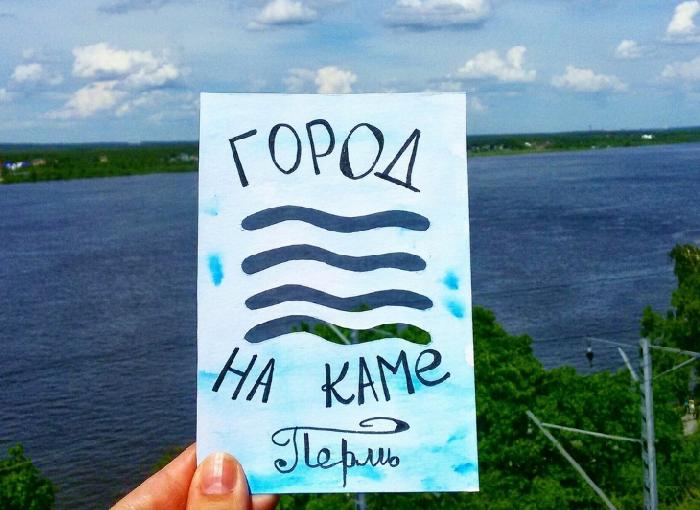 ГОРОД
НА КАМЕ
Пермь